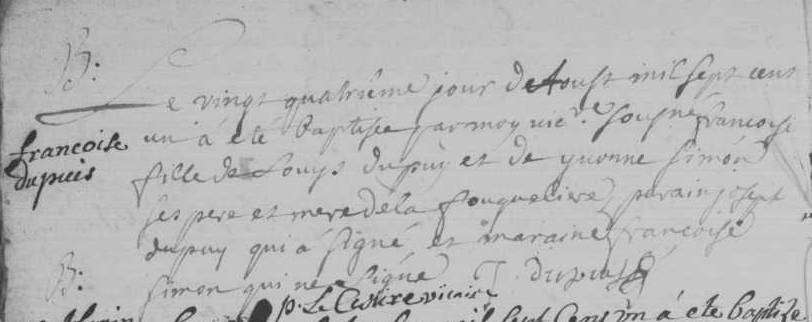 B.
Le vingt quatriême jour de Aoust mil sept cent
un à été baptisée par moy vic.re sousné francoise
francoise
dupuis
fille de Louys dupuy et de yvonne simon
ses pere et mere de la fouqueliere parain joseph
dupuy qui à signé et maraine francoise
simon qui ne signe J. dupuis
B.
p. Le Cu vicaire
mil sept cens un à eté baptisé